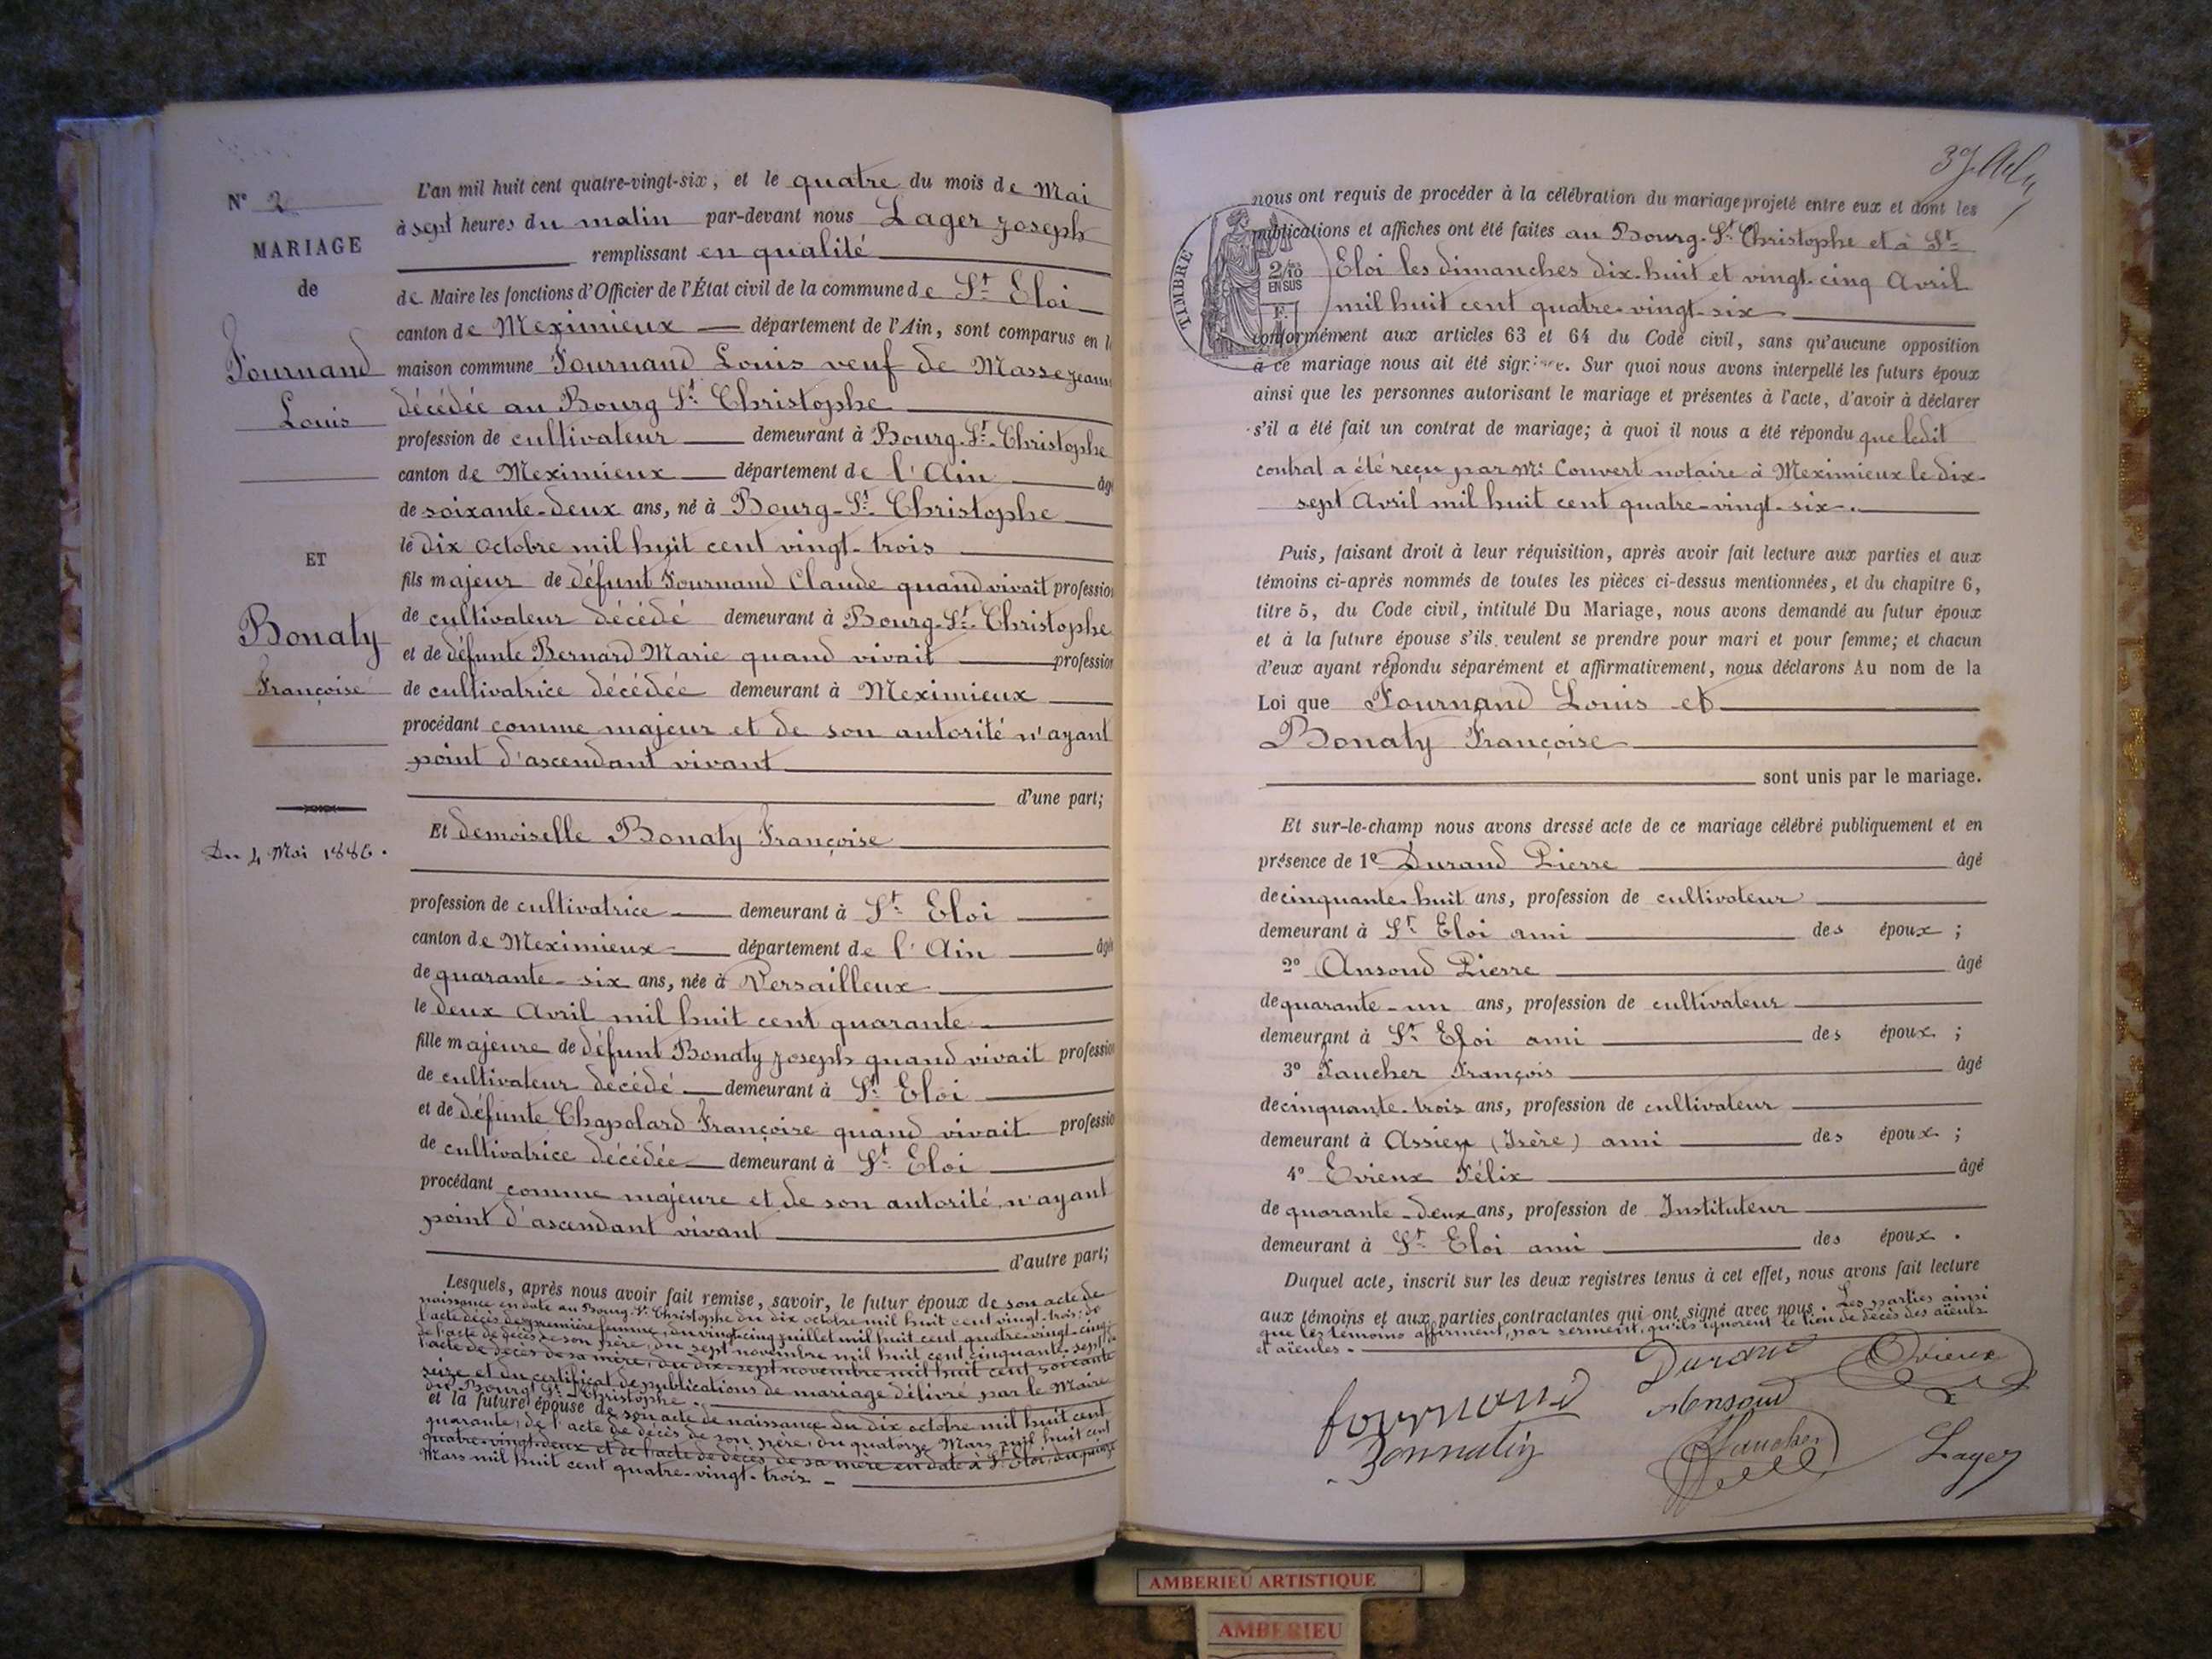 N° 2
MARIAGE
de
Fournand
Louis
ET
Bonaty
Françoise
Du 4 Mai 1886.
L'an mil huit cent quatre-vingt-six, et le quatre du mois de Mai
à sept heures du matin par-devant nous Lager Joseph
remplissant en qualité
de Maire les fonctions d'Officier de l'État civil de la commune de St Eloi
canton de Meximieux département de l'Ain, sont comparus en l
maison commune Fournand Louis veuf de Masse Jeann
décédée au Bourg St Christophe
profession de cultivateur demeurant à Bourg-St-Christophe
canton de Meximieux département de l'Ain âg
de soixante-deux ans, né à Bourg-St-Christophe
le dix octobre mil huit cent vingt-trois
fils majeur de défunt Fournand Claude quand vivait profession
de cultivateur décédé demeurant à Bourg-St-Christophe
et de défunte Bernard Marie quand vivait profession
de cultivatrice décédée demeurant à Meximieux
procédant comme majeur et de son autorité n'ayant
point d'ascendant vivant
d'une part;
Et demoiselle Bonaty Françoise
profession de cultivatrice demeurant à St Eloi
canton de Meximieux département de l'Ain âgé
de quarante-six ans, née à Versailleux
le deux Avril mil huit cent quarante
fille majeure de défunt Bonaty Joseph quand vivait professio
de cultivateur décédé demeurant à St Eloi
et de défunte Chapolard Françoise quand vivait professio
de cultivatrice décédée demeurant à St Eloi
procédant comme majeure et de son autorité n'ayant
point d'ascendant vivant
d'autre part;
Lesquels, après nous avoir fait remise, savoir, le futur époux de son acte de
naissance en date au Bourg-St-Christophe du dix octobre mil huit cent vingt-trois; de
l'acte décès de première femme, du vingt-cinq juillet mil huit cent quatre-vingt-cinq;
de l'acte de décès de son père, du sept novembre mil huit cent cinquante-sept;
l'acte de décès de sa mère, du dix-sept novembre mil huit cent soixante
seize et du certificat de publications de mariage délivré par le Maire
du Bourg St-Christophe.
et la future épouse de son acte de naissance du dix octobre mil huit cent
quarante; de l'acte de décès de son père, du quatorze Mars mil huit cent
quatre-vingt-deux et de l'acte de décès de sa mère en date à St Eloi, du quinze
Mars mil huit cent quatre-vingt-trois
nous ont requis de procéder à la célébration du mariage projeté entre eux et dont les
publications et affiches ont été faites au Bourg-St Christophe et à St
Eloi les dimanches dix-huit et vingt-cinq Avril
mil huit cent quatre-vingt-six
TIMBRE
2/10
EN SUS
conformément aux articles 63 et 64 du Code civil, sans qu'aucune opposition
à ce mariage nous ait été signifiée. Sur quoi nous avons interpellé les futurs époux
ainsi que les personnes autorisant le mariage et présentes à l'acte, d'avoir à déclarer
s'il a été fait un contrat de mariage; à quoi il nous a été répondu que ledit
contrat a été reçu par Me Convert notaire à Meximieux le dix-
sept Avril mil huit cent quatre-vingt-six.
Puis, faisant droit à leur réquisition, après avoir fait lecture aux parties et aux
témoins ci-après nommés de toutes les pièces ci-dessus mentionnées, et du chapitre 6,
titre 5, du Code civil, intitulé Du Mariage, nous avons demandé au futur époux
et à la future épouse s'ils veulent se prendre pour mari et pour femme; et chacun
d'eux ayant répondu séparément et affirmativement, nous déclarons Au nom de la
Loi que Fournand Louis et
Bonaty Françoise
sont unis par le mariage.
Et sur-le-champ nous avons dressé acte de ce mariage célébré publiquement et en
présence de 1° Durand Pierre âgé
de cinquante-huit ans, profession de cultivateur
demeurant à St Eloi ami des époux;
2° Ansond Pierre âgé
de quarante-un ans, profession de cultivateur
demeurant à St Eloi ami des époux;
3° Faucher François âgé
de cinquante-trois ans, profession de cultivateur
demeurant à Assieu (Isère) ami des époux;
4° Evieux Félix âgé
de quarante-deux ans, profession de Instituteur
demeurant à St Eloi ami des époux.
Duquel acte, inscrit sur les deux registres tenus à cet effet, nous avons fait lecture
aux témoins et aux parties contractantes qui ont signé avec nous. Les parties ainsi
que les témoins affirment, par serment, qu'ils ignorent le lieu de décès des aïeuls
et aïeules.
Durand Evieux
fournand Ansoud
Bonnatiy Faucher Lager
AMBERIEU ARTISTIQUE
AMBERIEU